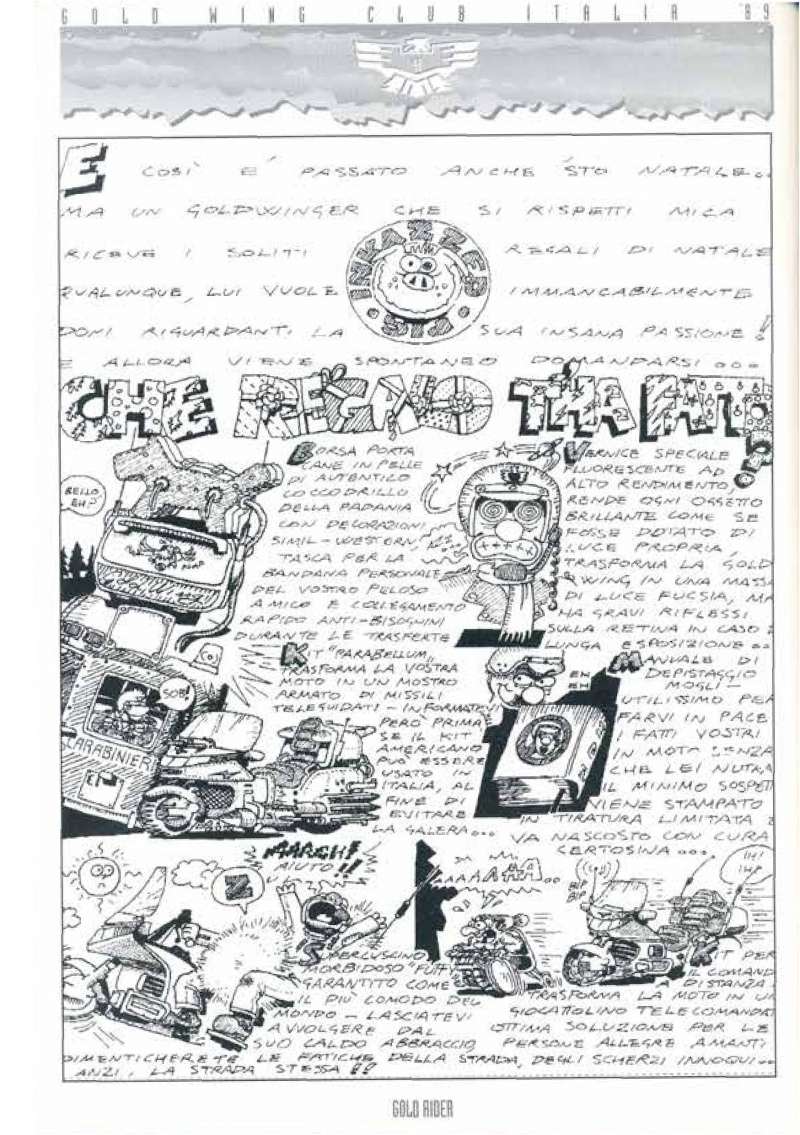 GOLD WING CLUB ITALIA '89
E COSI' E' PASSATO ANCHE 'STO NATALE...
MA UN GOLDWINGER CHE SI RISPETTI MICA
RICEVE I SOLITI REGALI DI NATALE
QUALUNQUE, LUI VUOLE IMMANCABILMENTE
DONI RIGUARDANTI LA SUA INSANA PASSIONE!
E ALLORA VIENE SPONTANEO DOMANDARSI...
INKAZZED
CHE REGALO T'HA FATTO?
BELLO EH?
BORSA PORTA
CANE IN PELLE
DI AUTENTICO
COCCODRILLO
DELLA PADANIA
CON DECORAZIONI
SIMIL-WESTERN,
TASCA PER LA
BANDANA PERSONALE
DEL VOSTRO PELOSO
AMICO E COLLEGAMENTO
RAPIDO ANTI-BISOGNINI
DURANTE LE TRASFERTE
VERNICE SPECIALE
FLUORESCENTE AD
ALTO RENDIMENTO,
RENDE OGNI OGGETTO
BRILLANTE COME SE
FOSSE DOTATO DI
LUCE PROPRIA,
TRASFORMA LA GOLD
WING IN UNA MASSA
DI LUCE FUCSIA, MA
HA GRAVI RIFLESSI
SULLA RETINA IN CASO
LUNGA ESPOSIZIONE...
KIT "PARABELLUM"
TRASFORMA LA VOSTRA
MOTO IN UN MOSTRO
ARMATO DI MISSILI
TELEGUIDATI - INFORMATEVI
PERO' PRIMA
SE IL KIT
AMERICANO
PUO' ESSERE
USATO IN
ITALIA, AL
FINE DI
EVITARE
LA GALERA...
SOB!
CARABINIER
EH EH
MANUALE DI
DEPISTAGGIO
MOGLI -
UTILISSIMO PER
FARVI IN PACE
I FATTI VOSTRI
IN MOTO SENZA
CHE LEI NUTRA
IL MINIMO SOSPETT
VIENE STAMPATO
IN TIRATURA LIMITATA
VA NASCOSTO CON CURA
CERTOSINA...
Z
AARGH!
AIUTO!!
PERCUSCINO
MORBIDOSO "FUFFY
GARANTITO COME
IL PIÙ COMODO DEL
MONDO - LASCIATEVI
AVVOLGERE DAL
SUO CALDO ABBRACCIO
DIMENTICHERETE LE FATICHE DELLA STRADA,
ANZI, LA STRADA STESSA!!
BIP
BIP
IH!
IH!
KIT PER
IL COMAND
A DISTANZA
TRASFORMA LA MOTO IN UN
GIOCATTOLINO TELECOMANDAT
OTTIMA SOLUZIONE PER LE
PERSONE ALLEGRE AMANTI
DEGLI SCHERZI INNOQUI...
GOLD RIDER